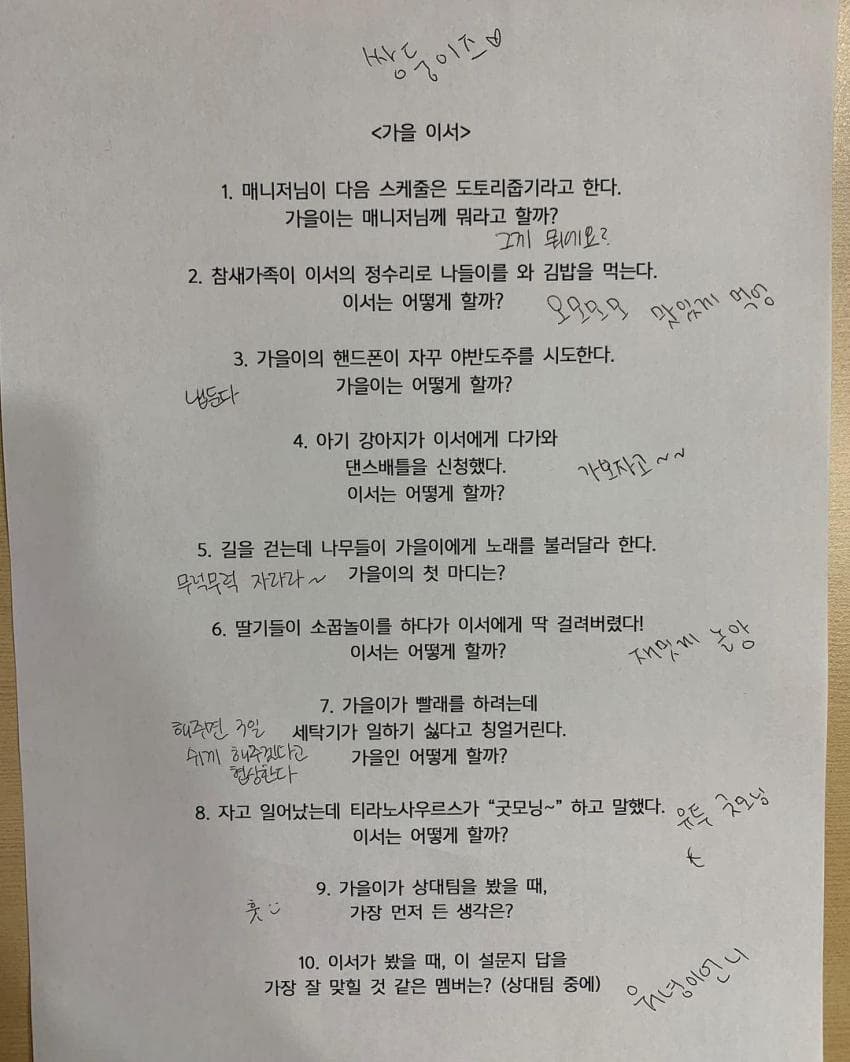 쌍둥이즈♡
<가을 이서>
1. 매니저님이 다음 스케줄은 도토리줍기라고 한다.
가을이는 매니저님께 뭐라고 할까?
그게 뭐에요?
2. 참새가족이 이서의 정수리로 나들이를 와 김밥을 먹는다.
이서는 어떻게 할까?
오모모모 맛있게 먹엉
3. 가을이의 핸드폰이 자꾸 야반도주를 시도한다.
가을이는 어떻게 할까?
냅둔다
4. 아기 강아지가 이서에게 다가와
댄스배틀을 신청했다.
이서는 어떻게 할까?
가보자고~~
5. 길을 걷는데 나무들이 가을이에게 노래를 불러달라 한다.
가을이의 첫 마디는?
무럭무럭 자라라~
6. 딸기들이 소꿉놀이를 하다가 이서에게 딱 걸려버렸다!
이서는 어떻게 할까?
재밋게 놀앙
7. 가을이가 빨래를 하려는데
세탁기가 일하기 싫다고 칭얼거린다.
가을인 어떻게 할까?
해주면 3일
쉬게 해주겠다고
협상한다
8. 자고 일어났는데 티라노사우르스가 “굿모닝~” 하고 말했다.
이서는 어떻게 할까?
유투 굿모닝
9. 가을이가 상대팀을 봤을 때,
가장 먼저 든 생각은?
훗
10. 이서가 봤을 때, 이 설문지 답을
가장 잘 맞힐 것 같은 멤버는? (상대팀 중에)
워녕이언니